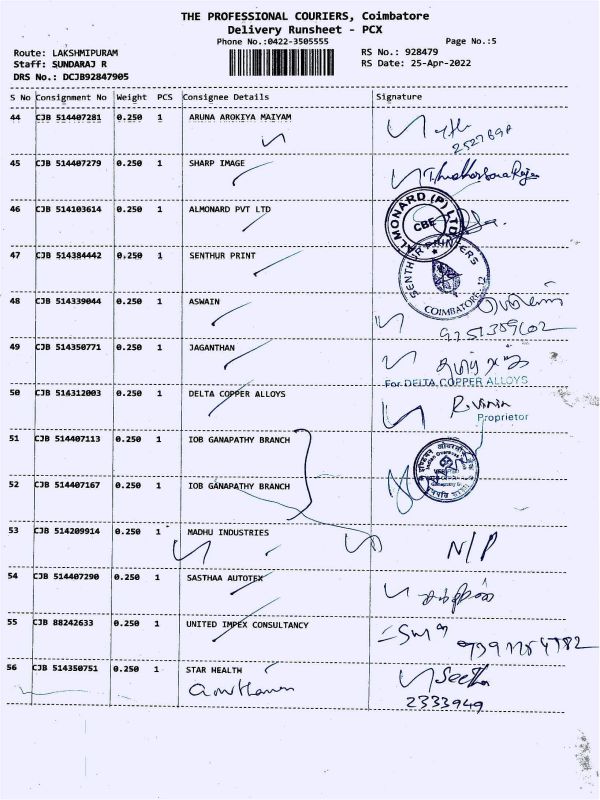 THE PROFESSIONAL COURIERS, Coimbatore
Delivery Runsheet - PCX
Phone No.:0422-3505555 Page No.:5
Route: LAKSHMIPURAM RS No.: 928479
Staff: SUNDARAJ R RS Date: 25-Apr-2022
DRS No.: DCJB92847905
S No Consignment No Weight PCS Consignee Details Signature
44 CJB 514407281 0.250 1 ARUNA AROKIYA MAIYAM
45 CJB 514407279 0.250 1 SHARP IMAGE
46 CJB 514103614 0.250 1 ALMONARD PVT LTD
ALMONARD (P) LTD
CBE
47 CJB 514384442 0.250 1 SENTHUR PRINT
SENTHUR PRINTERS
COIMBATORE-12
48 CJB 514339044 0.250 1 ASWAIN
49 CJB 514350771 0.250 1 JAGANTHAN
For DELTA COPPER ALLOYS
50 CJB 516312003 0.250 1 DELTA COPPER ALLOYS
Proprietor
51 CJB 514407113 0.250 1 IOB GANAPATHY BRANCH
52 CJB 514407167 0.250 1 IOB GANAPATHY BRANCH
53 CJB 514209914 0.250 1 MADHU INDUSTRIES N/P
54 CJB 514407290 0.250 1 SASTHAA AUTOTEX
55 CJB 88242633 0.250 1 UNITED IMPEX CONSULTANCY
56 CJB 514350751 0.250 1 STAR HEALTH Seetha
2333949